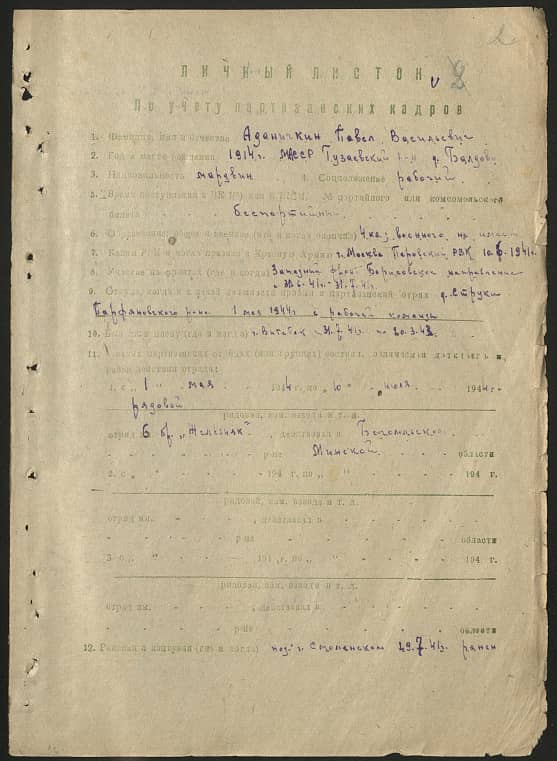 2
2
ЛИЧНЫЙ ЛИСТОК
По учету партизанских кадров
1. Фамилия, имя и отчество Аданичкин Павел Васильевич
2. Год и место рождения 1914г. МАССР д.
3. Национальность мордвин 4. Соцположение рабочий
5. Время поступления в партийного или комсомольского
билета беспартийный
6. Образование: общее и военное 4 кл. военного не имеет
7. Каким РВК и когда призван в Красную Армию г. Москва РВК 1941г.
8. Участие на фронтах (где и когда) Западный фронт Борисовское направление
с 41г. 31.7.41г.
9. партизанский отряд д. Струки
Парфяновского р-на 1 мая 1944г с рабочей команды
10. Был ли в плену (где и когда) г. Витебск с 31.7.41г. по 20.3.43
11. В каких партизанских отрядах (или группах) состоял,
район действия отряда:
1. с „ 1 " мая 194 4 г. по „ 10 " июля 1944 г.
рядовой
рядовой, ком. взвода и т. д.
отряд 6 бр. „Железняк", действовал в Бегомльском
районе Минской области
2. с „ " 194 г. по „ " 194 г.
рядовой, ком. взвода и т. д.
отряд им. , действовал в
районе области
3. с „ " 194 г. по „ " 194 г.
рядовой, ком. взвода и т. д.
отряд им. , действовал в
районе области
12. Ранения и контузии (где и когда) под г. 29.7.41г. ранен